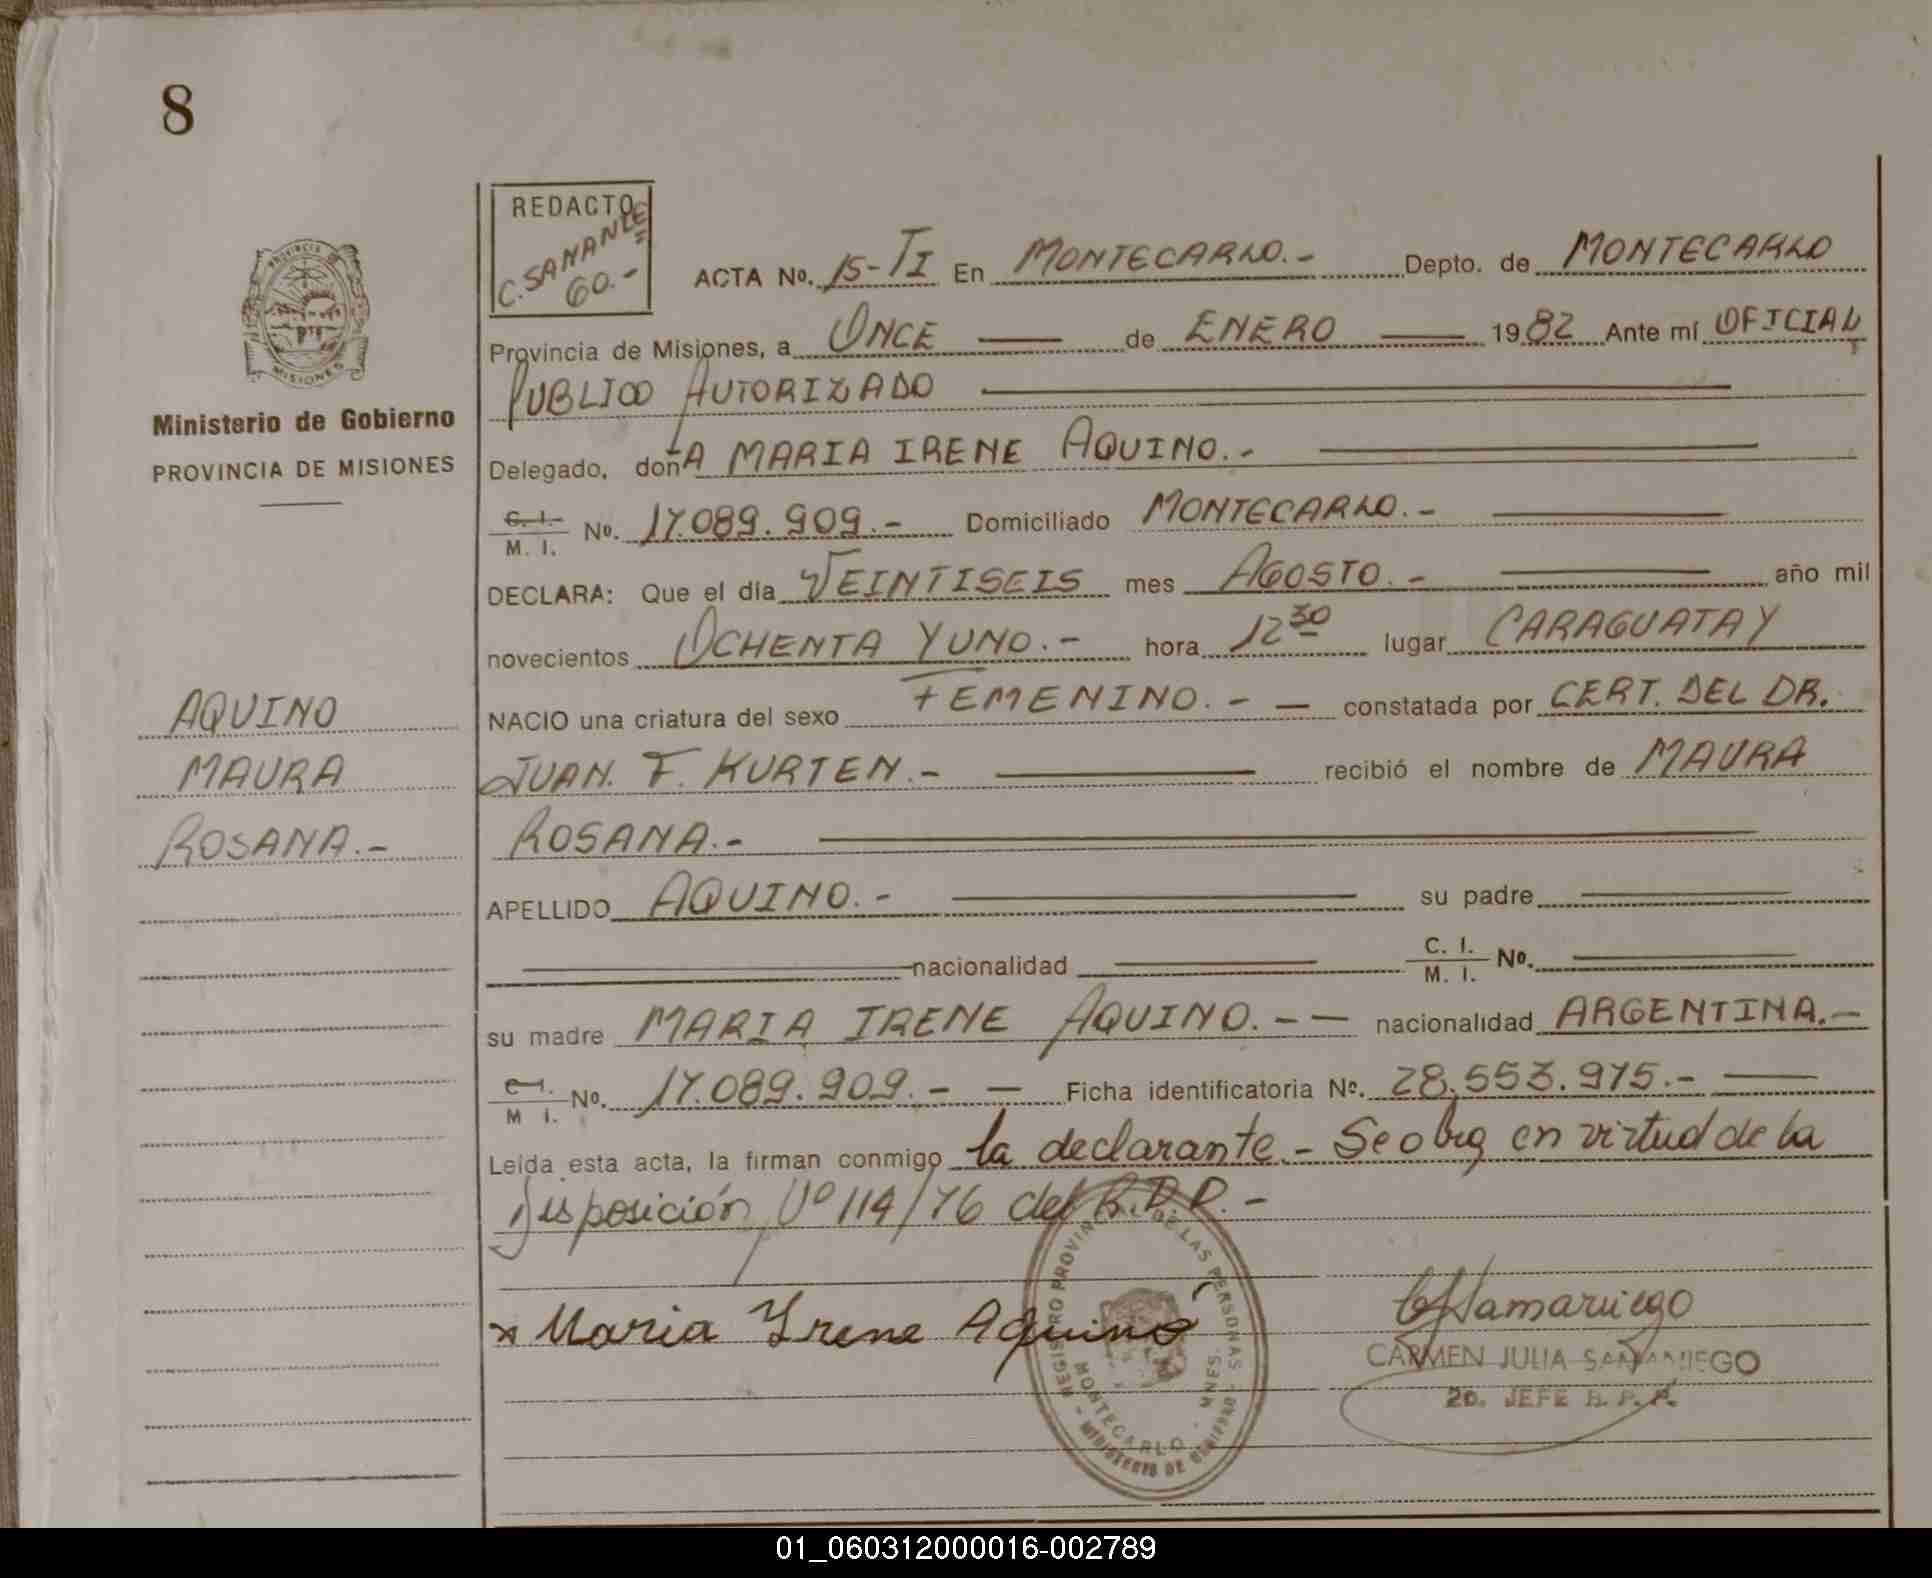 8
REDACTO
C. SANANLE
60.-
ACTA No. 15-TI En MONTECARLO.- Depto. de MONTECARLO
Provincia de Misiones, a ONCE de ENERO 1982 Ante mí OFICIAL
PUBLICO AUTORIZADO
PROVINCIA DE
MISIONES
Ministerio de Gobierno
PROVINCIA DE MISIONES
Delegado, doñA MARIA IRENE AQUINO.-
C. I. / M. I. No. 17.089.909.- Domiciliado MONTECARLO.-
DECLARA: Que el día VEINTISEIS mes AGOSTO.- año mil
novecientos OCHENTA Y UNO.- hora 12 30 lugar CARAGUATAY
NACIO una criatura del sexo FEMENINO.- - constatada por CERT. DEL DR.
JUAN. F. KURTEN.- recibió el nombre de MAURA
ROSANA.-
AQUINO
MAURA
ROSANA.-
APELLIDO AQUINO.- su padre
nacionalidad C. I. / M. I. No.
su madre MARIA IRENE AQUINO.- - nacionalidad ARGENTINA.-
C. I. / M. I. No. 17.089.909.- - Ficha identificatoria No. 28.553.975.-
Leída esta acta, la firman conmigo la declarante.- Se obra en virtud de la
Disposición Nº 114/76 del R.P.P.-
x Maria Irene Aquino
REGISTRO PROVINCIAL DE LAS PERSONAS
MONTECARLO - MNES.
- MINISTERIO DE GOBIERNO -
CJSamaniego
CARMEN JULIA SAMANIEGO
2o. JEFE R. P. P.
01_060312000016-002789